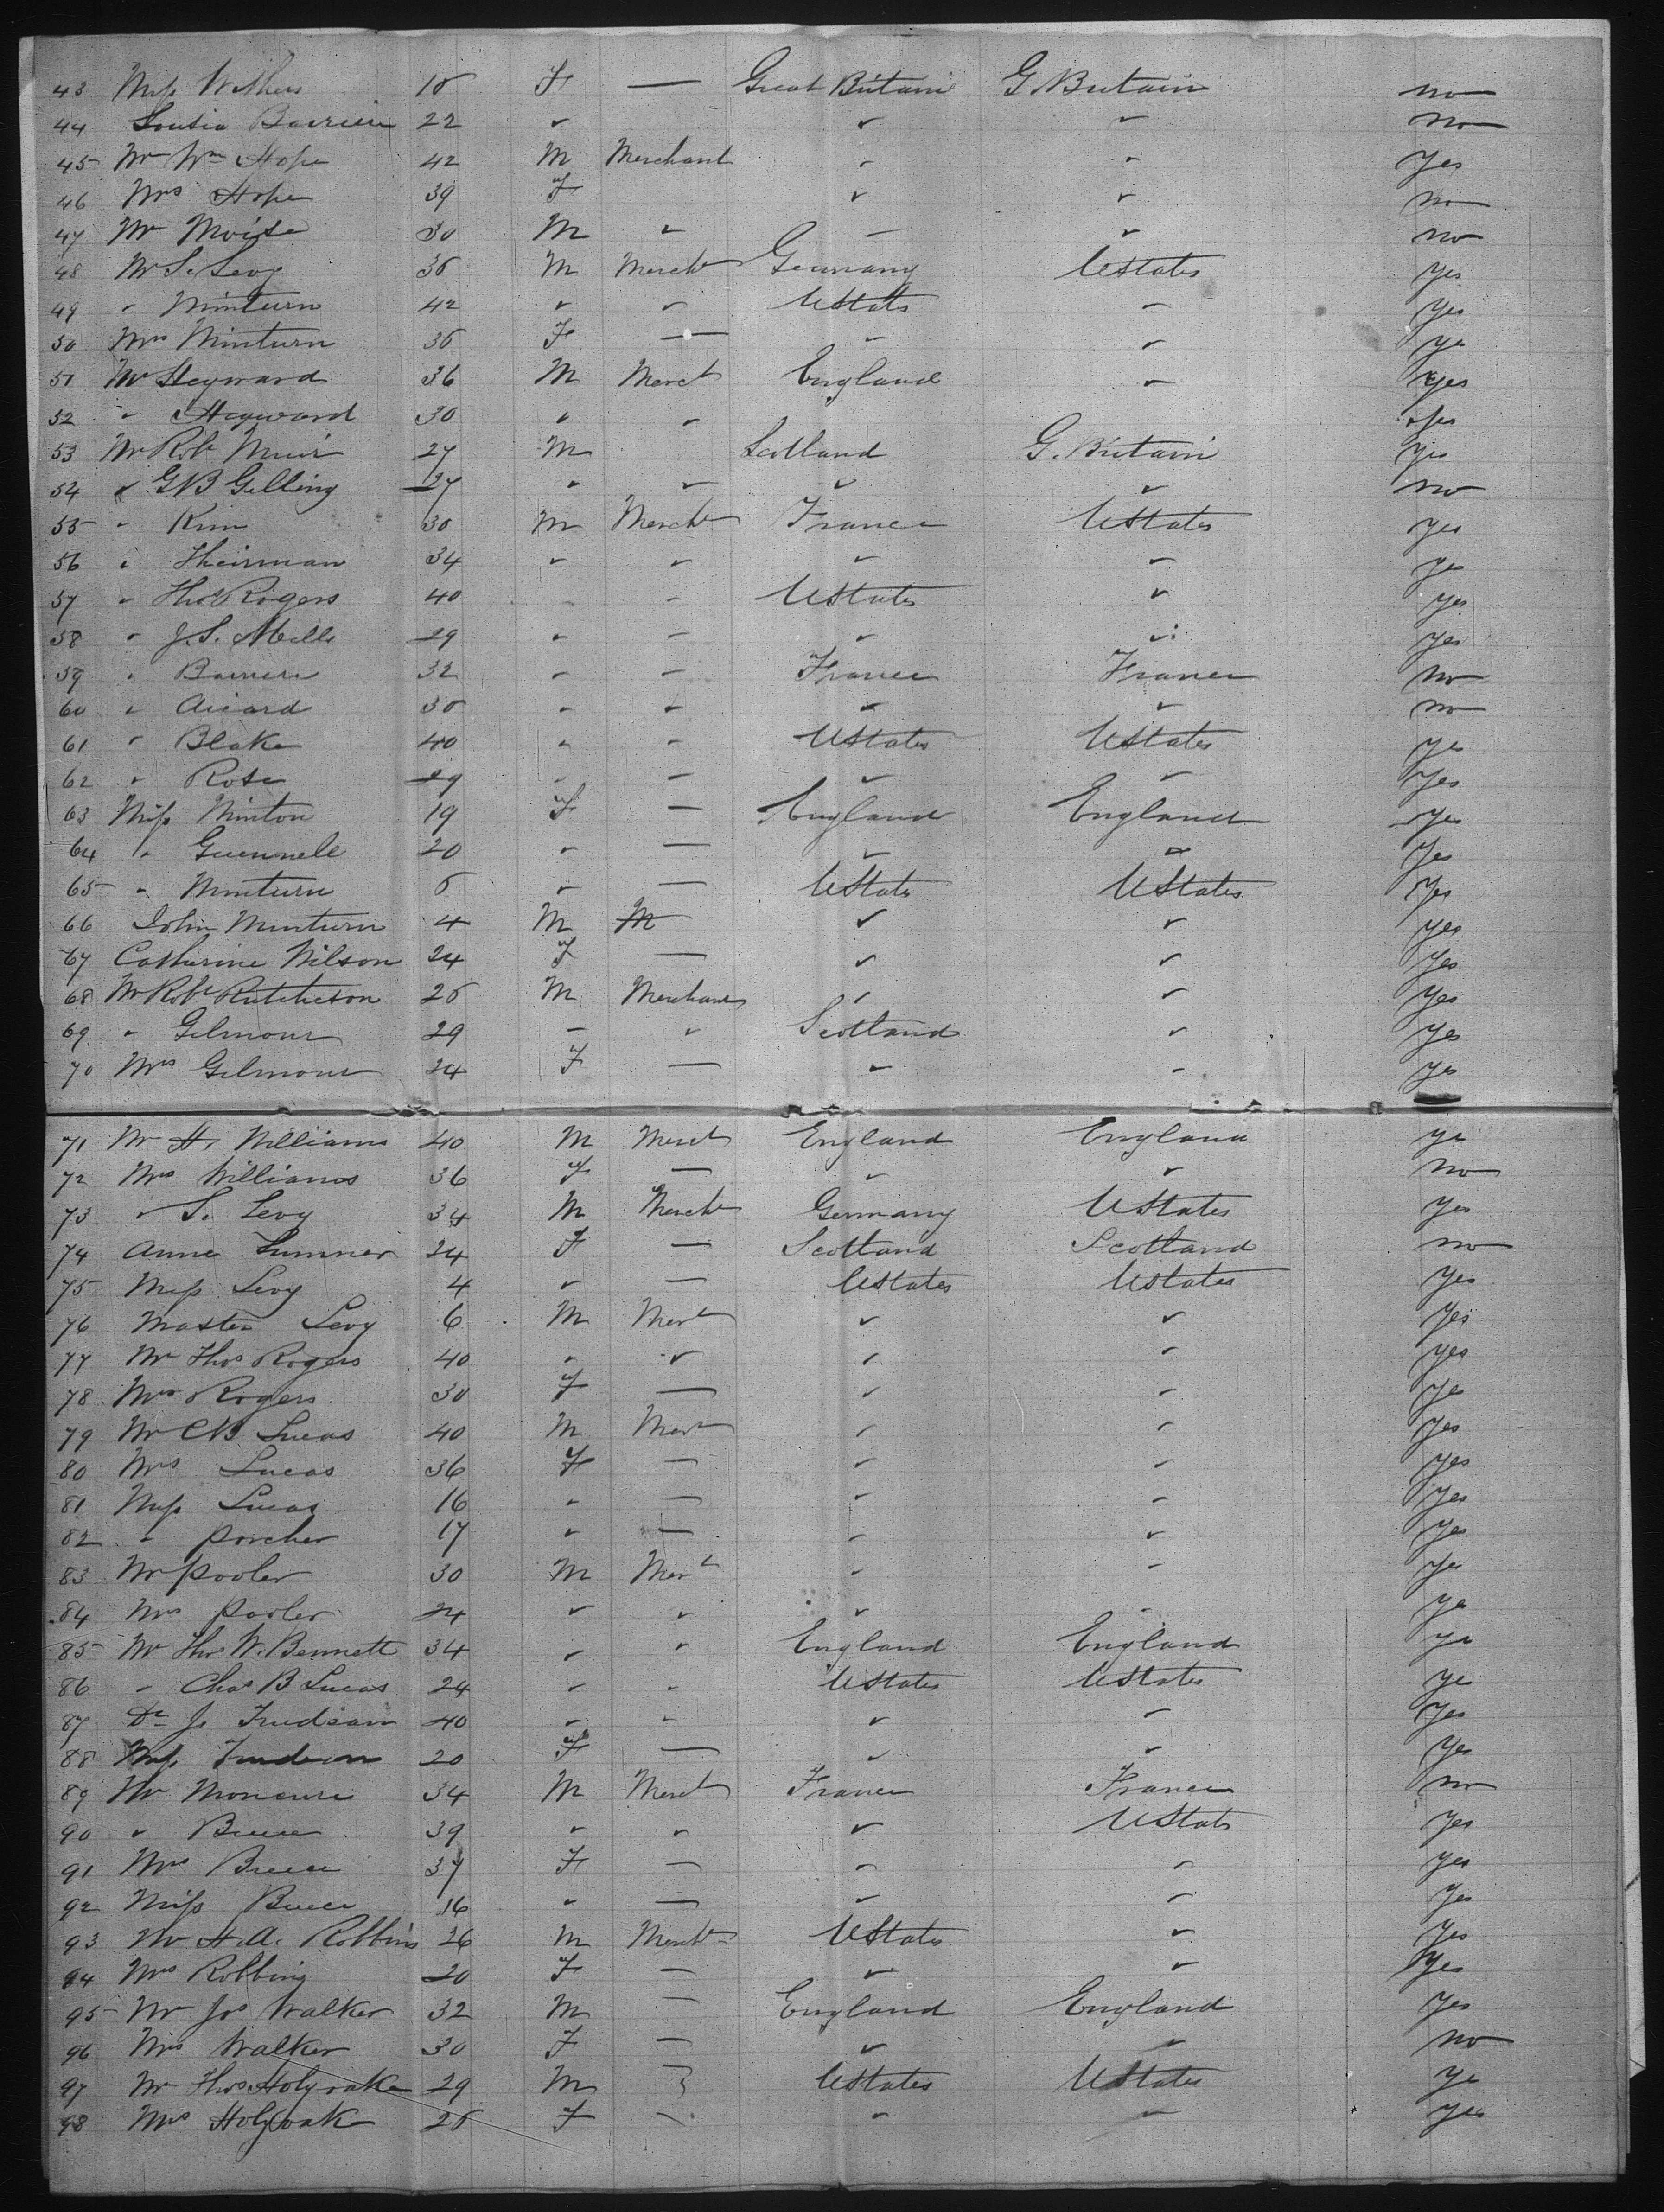 43 Miss Withers 18 F — Great Britain G Britain no
44 Louisa Barriere 22 " " " no
45 Mr Wm Hope 42 M Merchant " " yes
46 Mrs Hope 39 F " " no
47 Mr Moise 30 M " — " no
48 Mr S. Levy 35 M Mercht Germany UStates yes
49 " Minturn 42 " " UStates " yes
50 Mrs Minturn 35 F — " " yes
51 Mr Heyward 36 M Merct England " yes
52 " Heyward 30 " " yes
53 Mr Robt Muir 27 M Scotland G. Britain yes
54 " GB Gelling 27 " " " " no
55 " Kim 30 M Mercht France UStates yes
56 " Theirman 34 " " " " yes
57 " Thos Rogers 40 " " UStates " yes
58 " J. S. Mills 29 " " " " yes
59 " Barriere 32 " " France France no
60 " Aicard 35 " " " " no
61 " Blake 40 " " UStates UStates yes
62 " Rose 29 " " " " yes
63 Miss Minton 19 F — England England yes
64 " Guennele 20 " — " " yes
65 " Minturn 5 " — UStates UStates yes
66 John Minturn 4 M M " " yes
67 Catherine Wilson 24 F — " " yes
68 Mr Robt Hutcheson 25 M Merchant " " yes
69 " Gilmour 29 — " Scotland " yes
70 Mrs Gilmour 24 F — " " yes
71 Mr H. Williams 40 M Merct England England yes
72 Mrs Williams 36 F — " " no
73 " S. Levy 34 M Mercht Germany UStates yes
74 Anne Sumner 24 F — Scotland Scotland no
75 Miss Levy 4 " — UStates UStates yes
76 Master Levy 6 M Mert " " yes
77 Mr Thos Rogers 40 " " " " yes
78 Mrs Rogers 30 F — " " yes
79 Mr CB Lucas 40 M Mert " " yes
80 Mrs Lucas 36 F — " " yes
81 Miss Lucas 16 " — " " yes
82 " Porcher 17 " — " " yes
83 Mr Pooler 30 M Mert " " yes
84 Mrs Pooler 24 " " " " yes
85 Mr Thos W. Bennett 34 " " England England yes
86 " Chas B Lucas 24 " " UStates UStates yes
87 Dr J. Trudeau 40 " " " " yes
88 Miss Trudeau 20 F — " " yes
89 Mr Moncure 34 M Merct France France no
90 " Bruce 39 " " " UStates yes
91 Mrs Bruce 37 F — " " yes
92 Miss Bruce 16 " — " " yes
93 Mr H. A. Robbins 26 M Mercht UStates " yes
94 Mrs Robbins 20 F — " " yes
95 Mr Jos Walker 32 M — England England yes
96 Mrs Walker 30 F — " " no
97 Mr Thos Holyoake 29 M UStates UStates yes
98 Mrs Holyoake 25 F " " yes